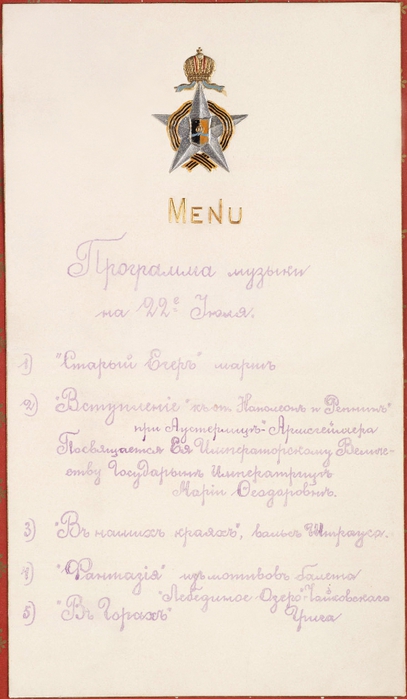 MENU
Программа музыки
на 22е Июля.
1) "Старый Егеръ" маршъ
2) "Вступленіе" къ оп. Наполеонъ и Репнинъ"
при Аустерлицѣ" Армсгеймера
Посвящается Ея Императорскому Величе-
ству Государынѣ Императрицѣ
Маріи Ѳеодоровнѣ.
3) "Въ нашихъ краяхъ", вальсъ Штрауса.
4) "Фантазія" изъ мотивовъ балета
"Лебединое Озеро" Чайковскаго
5) "Въ Горахъ" Грига